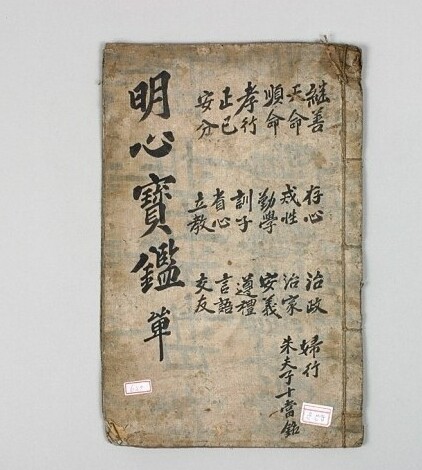 継善
天命
順命
孝行
正己
安分
存心
戒性
勤學
訓子
省心
立教
治政
治家
安義
遵禮
言語
交友
婦行
朱夫子十當銘
明心寶鑑 單